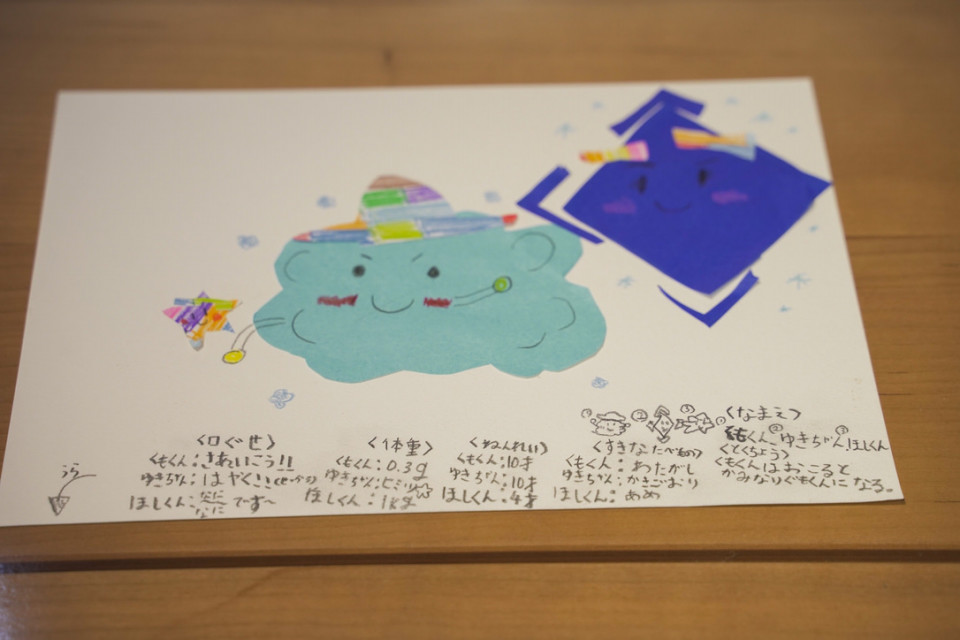 ① ② ③
<なまえ>
くもくん ② ゆきちゃん ③ ほしくん
<とくちょう>
くもくんはおこると
かみなりぐもくんになる。
<すきなたべもの>
くもくん：わたがし
ゆきちゃん：かきごおり
ほしくん：あめ
<ねんれい>
くもくん：10才
ゆきちゃん：10才
ほしくん：4才
<体重>
くもくん：0.3g
ゆきちゃん：ヒミツ
ほしくん：1kg
<口ぐせ>
くもくん：さあいこう!!
ゆきちゃん：はやく!!
ほしくん：なになにです〜
うらー